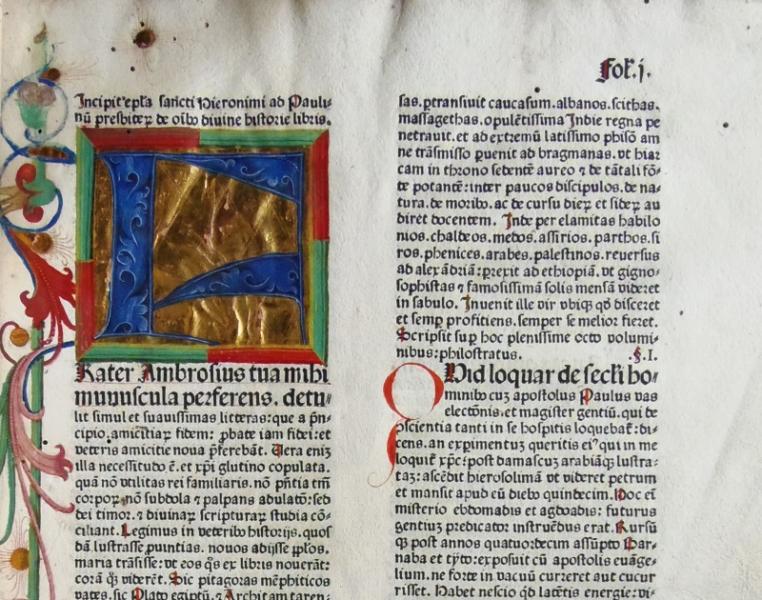 Fol̄.j.
Incipit ep̄la sancti Hieronimi ad Pauli-
nū presbiteꝝ de oībꝰ diuine historie libris.
F
Rater Ambrosius tua mihi
munuscula perferens. detu-
lit simul et suauissimas litteras: que a p̄n-
cipio.amicitiaꝝ fidem: ꝓbate iam fidei: et
veteris amicitie noua p̄ferebāt. Uera eniꝫ
illa necessitudo ē. et xp̄i glutino copulata.
quā nō vtilitas rei familiaris. nō p̄ntia tm̄
corpoꝝ. nō subdola ⁊ palpans adulatō: sed
dei timor. ⁊ diuinaꝝ scripturaꝝ studia cō-
ciliant. Legimus in veteribꝰ historijs. quos
dā lustrasse ꝓuintias. nouos adijsse pp̄los.
maria trāsisse: vt eos q̄s ex libris nouerāt:
corā q̄ꝫ viderēt. Sic pitagoras mēphiticos
vates. sic Plato egiptū. ⁊ Architam taren-
sas. ꝑtransiuit caucasum. albanos. scithas.
massagethas. opulētissima Indie regna pe
netrauit. et ad extremū latissimo phisō am
ne trāsmisso ꝑuenit ad bragmanas. vt hiar
cam in throno sedentē aureo ⁊ de tātali fō-
te potantē: inter paucos discipulos. de na-
tura. de moribꝰ. ac de cursu dieꝝ et sideꝝ au
diret docentem. Inde per elamitas babilo
nios. chaldeos. medos. assirios. parthos. si
ros. phenices. arabes. palestinos. reuersus
ad alexādriā: ꝑrexit ad ethiopiā. vt gigno-
sophistas ⁊ famosissimā solis mensā videret
in sabulo. Inuenit ille vir vbiqꝫ qd̄ disceret
et semꝑ proficiens. semper se melior fieret.
Scripsit suꝑ hoc plenissime octo volumi-
nibus: philostratus. .§.I.
Quid loquar de seclī ho-
minibꝰ cuꝫ apostolus Paulus vas
electōnis. et magister gentiū. qui de
ↄscientia tanti in se hospitis loquebat᷑: di-
cens. an experimentuꝫ queritis eiꝰ qui in me
loquit᷑ xp̄c: post damascuꝫ arabiāqꝫ lustra-
taꝫ: ascēdit hierosolimā vt videret petrum
et mansit apud eū diebꝰ quindecim. Hoc em̄
misterio ebdomadis et ogdoadis: futurus
gentiuꝫ predicator instruēdus erat. Rursū
qꝫ post annos quatuordecim assūpto Bar-
naba et tyto: exposuit cū apostolis euāge-
lium. ne forte in vacuū curreret aut cucur
risset. Habet nescio qd̄ latētis energie: vi-